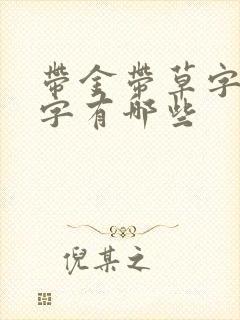 帶金帶草字
字有哪些
倪某之